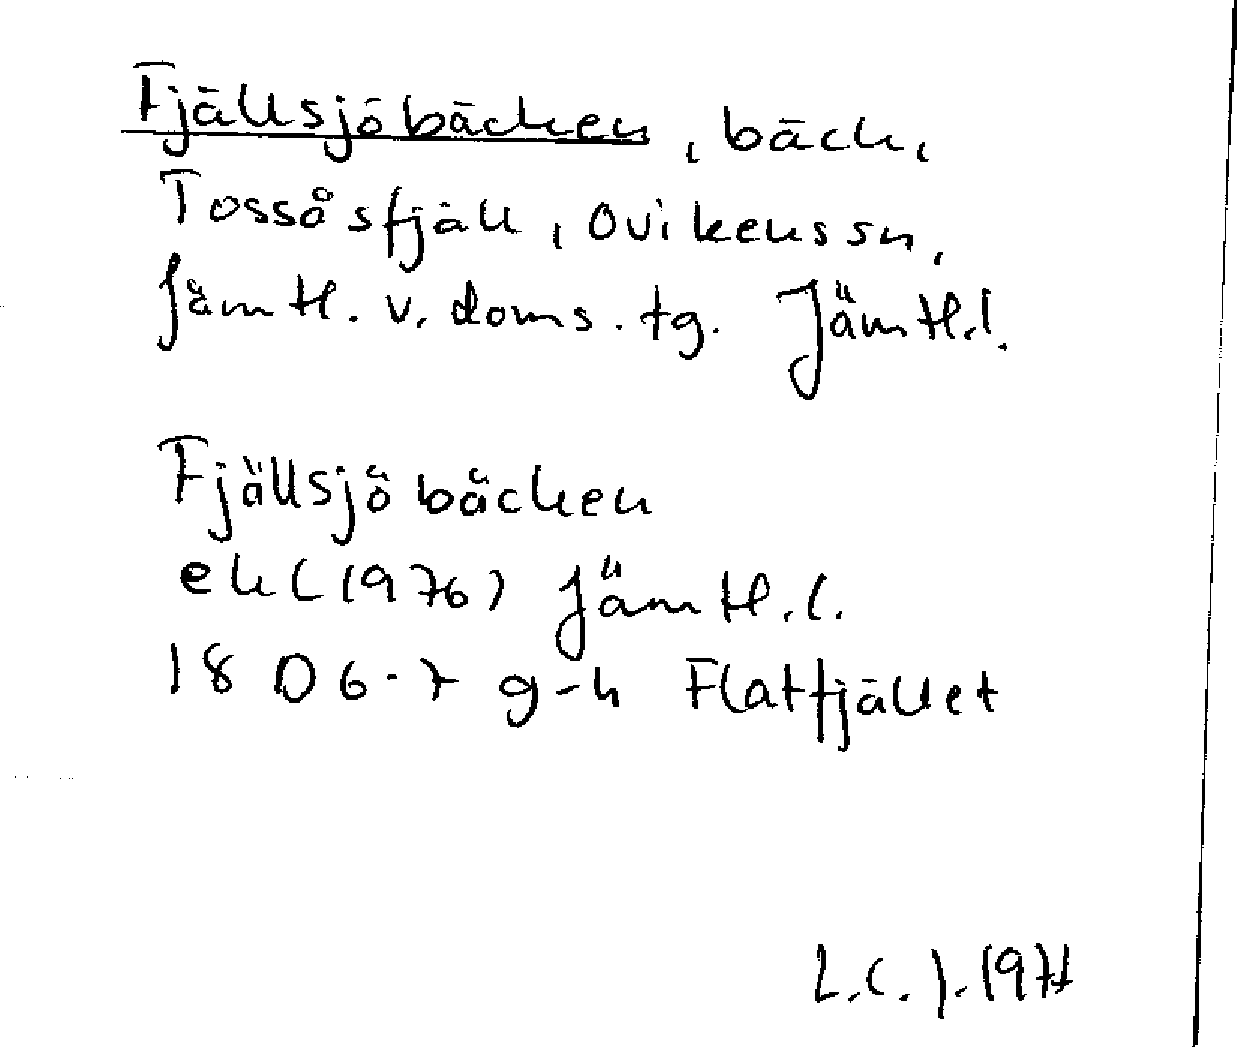 Fjällsjöbäcken, bäck,
Tossåsfjäll, Ovikens sn,
Jämtl. v. doms. tg. Jämtl. l.
Fjällsjöbäcken
ekl (1976) Jämtl. l.
18 D 6-7 g-h Flatfjället
L.C.J. 1977